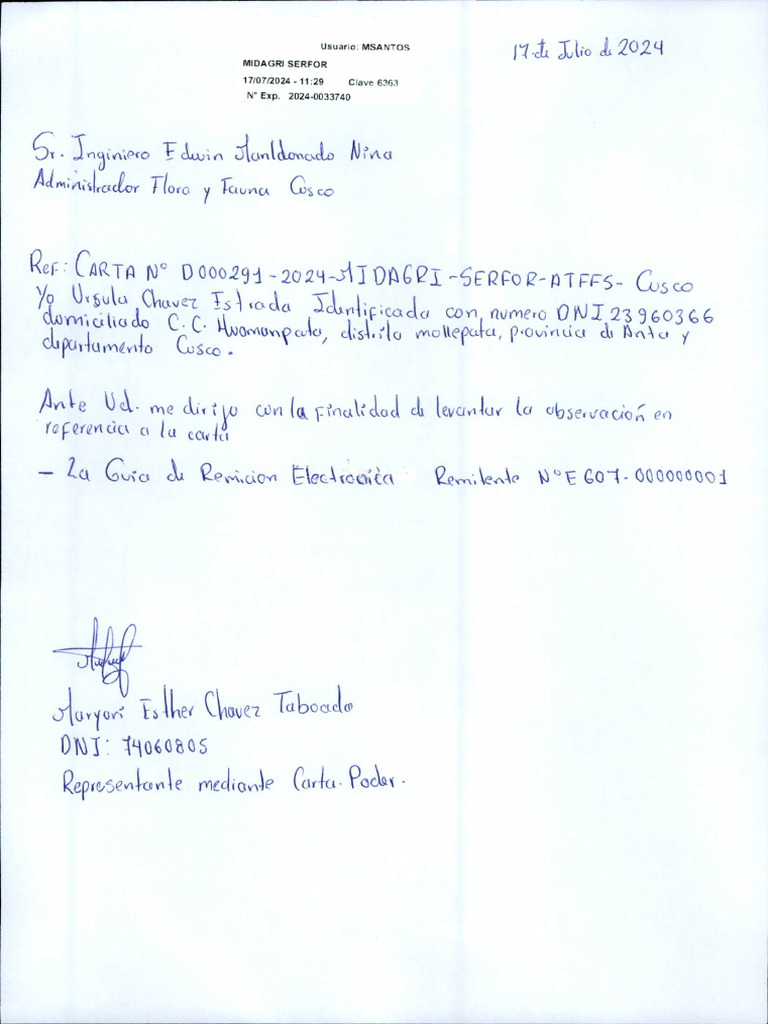 Usuario: MSANTOS
MIDAGRI SERFOR
17/07/2024 - 11:29 Clave 6363
N° Exp. 2024-0033740
17 de Julio de 2024
Sr. Inginiero Edwin Manldonado Nina
Administrador Flora y Fauna Cusco
Ref: CARTA N° D000291-2024-MIDAGRI-SERFOR-ATFFS- Cusco
Yo Ursula Chavez Estrada Identificada con numero DNI 23960366
domiciliado C.C. Huamanpata, distrito mollepata, provincia de Anta y
departamento Cusco.
Ante Ud. me dirijo con la finalidad de levantar la observación en
referencia a la carta
- La Guia de Remicion Electronica Remitente N° E607-000000001
Maryori Esther Chavez Taboada
DNI: 74060805
Representante mediante Carta Poder.